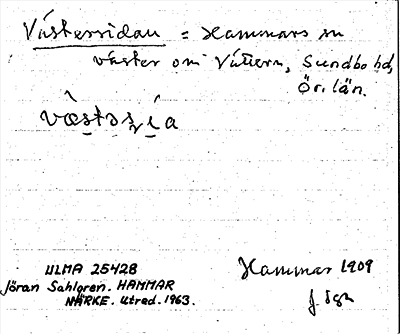 Västersidan = Hammars sn
väster om Vättern, Sundbo hd,
Ör. län.
væstəsi̱a
ULMA 25428
Jöran Sahlgren. HAMMAR
NÄRKE. Utred. 1963.
Hammar 1909
J. Sgn